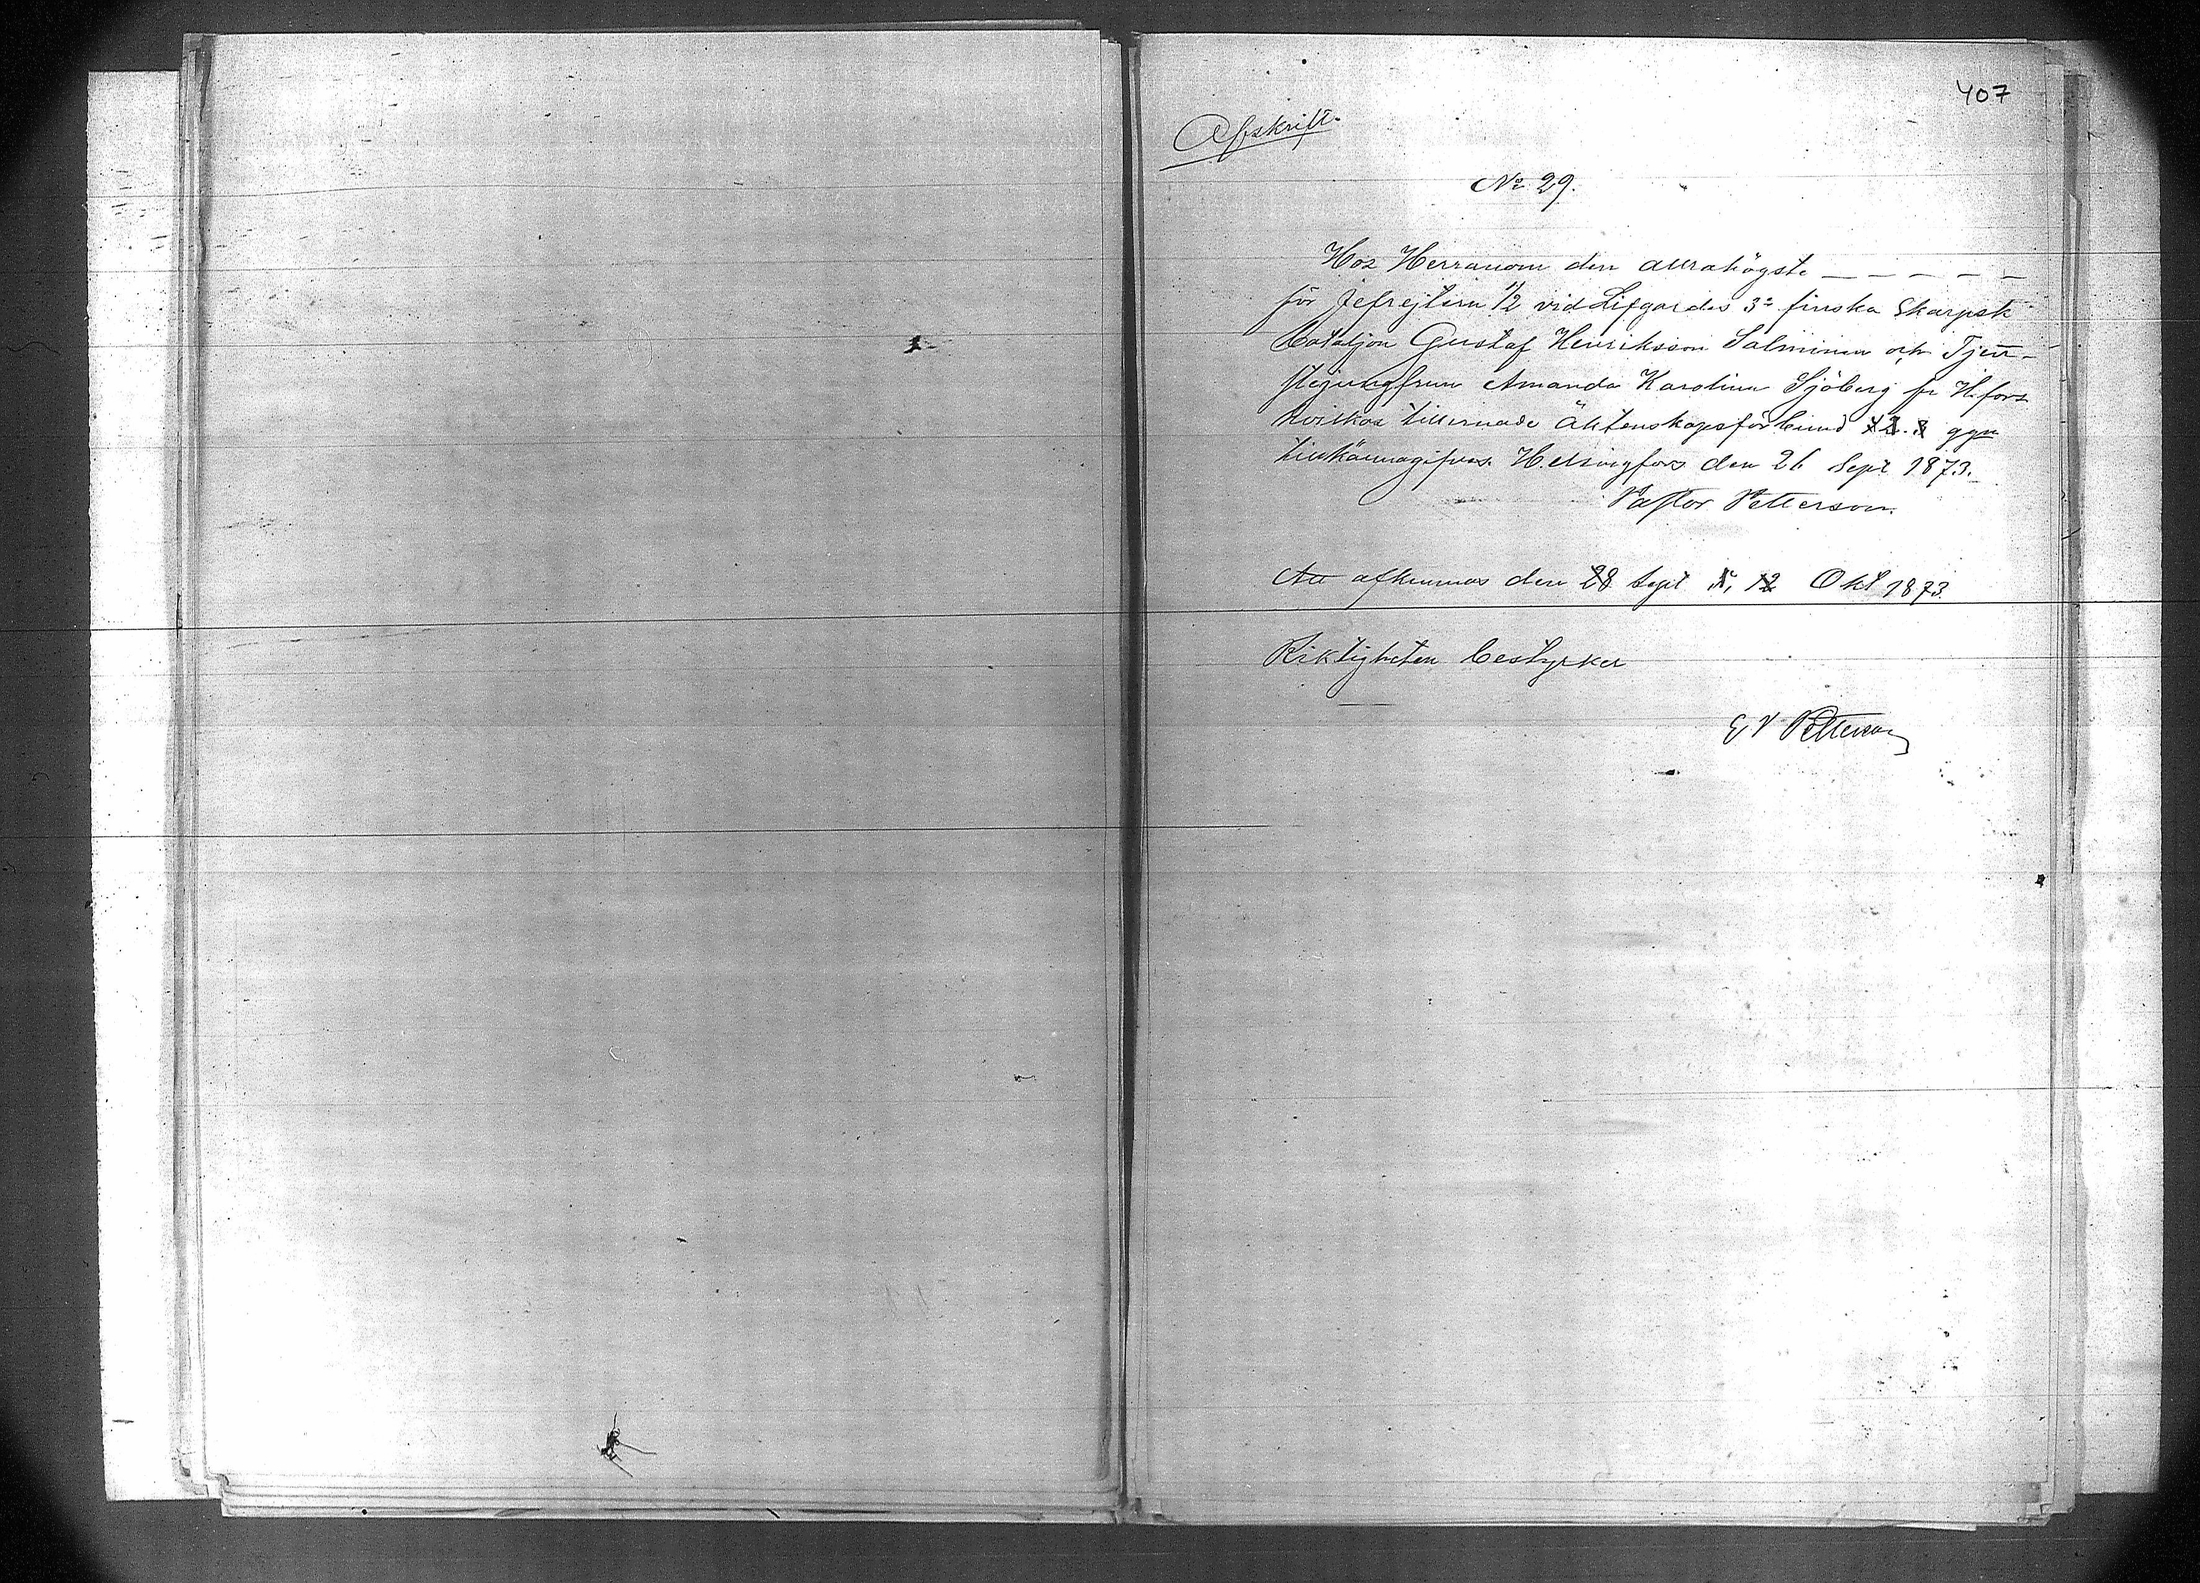 407
Afskrift.
No 29.
Hos Herranom den allrahögste — — — — —
för Jefrejtern 1/2 vid Lifgardes 3e finska Skarpsk
bataljon Gustaf Henriksson Salminen och Tjen-
stejungfrun Amanda Karolina Sjöberg fr H.fors
hvilkas tillernade Äktenskapsförbund ggn
tillkännagifves. Helsingfors den 26 Sept 1873.
Pastor Petterson.
Att afkunnas den 28 Sept 5, 12 Okt 1873.
Riktigheten bestyrker
E V Petterson